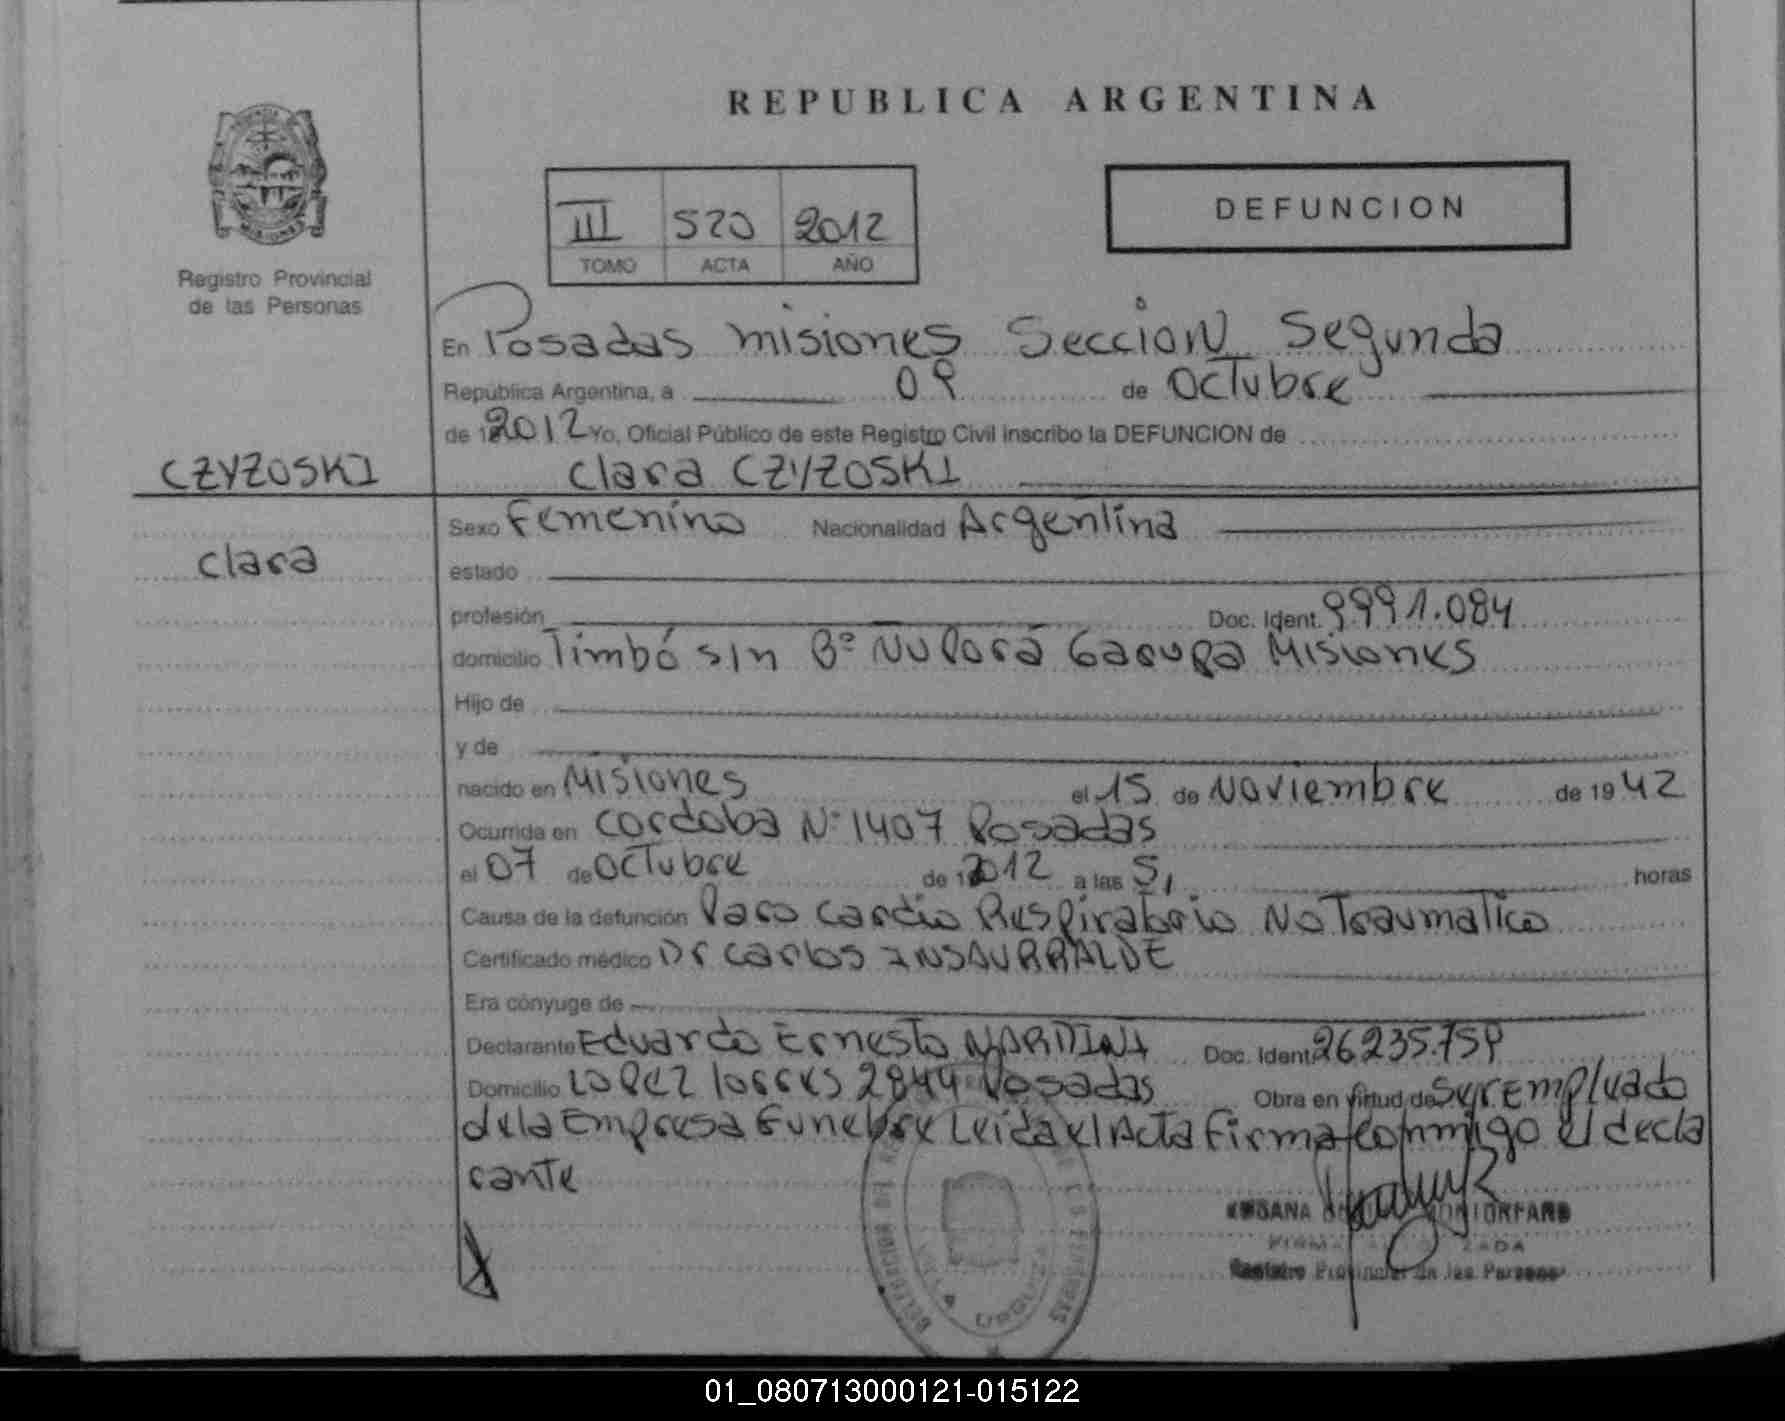 REPUBLICA ARGENTINA
III 520 2012
TOMO ACTA AÑO
DEFUNCION
Registro Provincial
de las Personas
En Posadas misiones Sección Segunda
República Argentina, a 09 de Octubre
de 2012 Yo, Oficial Público de este Registro Civil inscribo la DEFUNCION de
CZYZOSKI
Clara CZYZOSKI
Sexo Femenino Nacionalidad Argentina
Clara
estado
profesión Doc. Ident. 9991.084
domicilio Timbó s/n Bº Nu Porá Garupa Misiones
Hijo de
y de
nacido en Misiones el 15 de Noviembre de 1942
Ocurrida en Cordoba Nº 1407 Posadas
el 07 de Octubre de 2012 a las 5, horas
Causa de la defunción Paro Cardio Respiratorio No Traumatico
Certificado médico Dr Carlos INSAURRALDE
Era cónyuge de
Declarante Eduardo Ernesto MARTINI Doc. Ident. 26235.759
Domicilio Lopez Torres 2844 Posadas Obra en virtud de Ser Empleado
de la Empresa Funebre Leida el Acta Firma conmigo el decla
rante
Registro Provincial de las Personas
URQUIZA
01_080713000121-015122